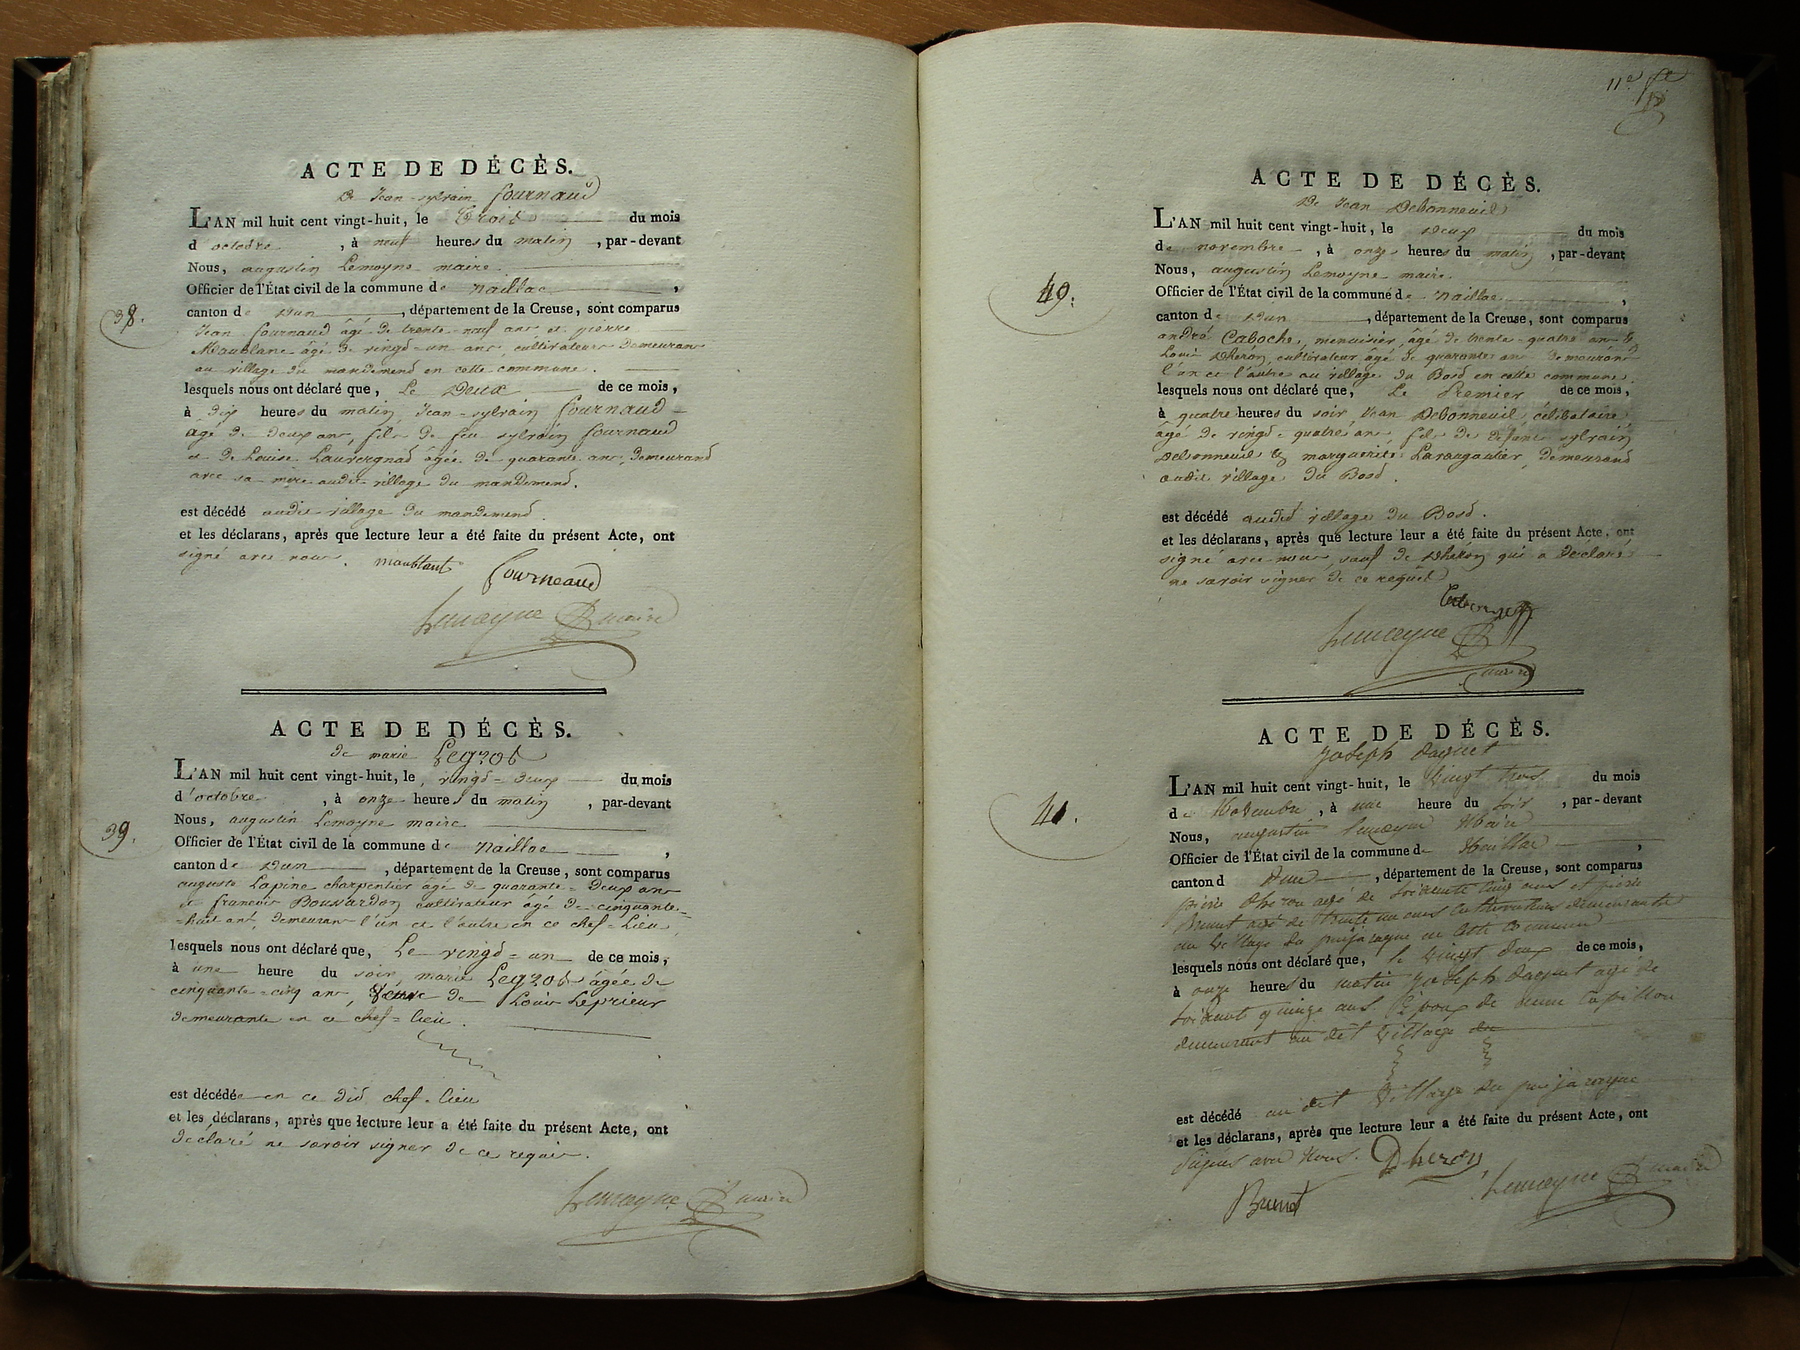 ACTE DE DÉCÈS.
De Jean-sylvain fournaud
L'AN mil huit cent vingt-huit, le trois du mois
d'octobre, à neuf heures du matin, par-devant
Nous, augustin Lemoyne maire
Officier de l'État civil de la commune de naillac,
38.
canton de Dun, département de la Creuse, sont comparus
Jean fournaud âgé de trente-neuf ans et pierre
Maublanc âgé de vingt-un ans, cultivateurs demeurans
au village du mandement en cette commune.
lesquels nous ont déclaré que, Le Deux de ce mois,
à dix heures du matin Jean-sylvain fournaud
âgé de deux ans, fils de feu sylvain fournaud
et de Louise Lauvergnad âgée de quarante ans, demeurand
avec sa mère audit village du mandement.
est décédé audit village du mandement
et les déclarans, après que lecture leur a été faite du présent Acte, ont
signé avec nous. maublant fourneaud
Lemoyne maire
ACTE DE DÉCÈS.
de marie Legros
L'AN mil huit cent vingt-huit, le vingt-deux du mois
d'octobre, à onze heures du matin, par-devant
Nous, augustin Lemoyne maire
39.
Officier de l'État civil de la commune de naillac,
canton de Dun, département de la Creuse, sont comparus
auguste Lapine charpentier âgé de quarante-deux ans
et francois Boussardon cultivateur âgé de cinquante-
-huit ans, demeurans l'un et l'autre en ce chef-Lieu
lesquels nous ont déclaré que, Le vingt-un de ce mois,
à une heure du soir marie Legros âgée de
cinquante-cinq ans, veuve de Louis Leprieur
demeurante en ce chef-lieu.
est décédée en ce dit chef-lieu
et les déclarans, après que lecture leur a été faite du présent Acte, ont
déclaré ne savoir signer de ce requis.
Lemoyne maire
11e
ACTE DE DÉCÈS.
De Jean Debonneuil
L'AN mil huit cent vingt-huit, le deux du mois
de novembre, à onze heures du matin, par-devant
Nous, augustin Lemoyne maire.
40.
Officier de l'État civil de la commune de naillac,
canton de Dun, département de la Creuse, sont comparus
andré Caboche, menuisier, âgé de trente-quatre ans &
Louis Dheron, cultivateur âgé de quarante ans demeurans
l'un et l'autre au village du Bosd en cette commune,
lesquels nous ont déclaré que, Le Premier de ce mois,
à quatre heures du soir Jean Debonneuil, célibataire
âgé de vingt-quatre ans, fils de défunt sylvain
Debonneuil & marguerite Laraugautier, demeurand
audit village du Bosd.
est décédé audit village du Bosd.
et les déclarans, après que lecture leur a été faite du présent Acte, ont
signé avec nous, sauf de Dheron qui a déclaré
ne savoir signer de ce requis
Lemoyne
maire
ACTE DE DÉCÈS.
Joseph daguet
L'AN mil huit cent vingt-huit, le vingt trois du mois
de Novembre, à une heure du soir, par-devant
41.
Nous, augustin Lemoyne Maire
Officier de l'État civil de la commune de Naillac,
canton d Dun, département de la Creuse, sont comparus
pierre dheron agé de soixante cinq ans et pierre
Brunet agé de trente un ans cultivateurs demeurants
au village du puijaraque en cette commune
lesquels nous ont déclaré que, le vingt deux de ce mois,
à onze heures du matin Joseph daguet agé de
soixante quinze ans. Epoux de Anne Papillon
demeurant au dit village du
est décédé au dit village du puijaraque
et les déclarans, après que lecture leur a été faite du présent Acte, ont
signés avec Nous. Dheron
Brunet Lemoyne maire